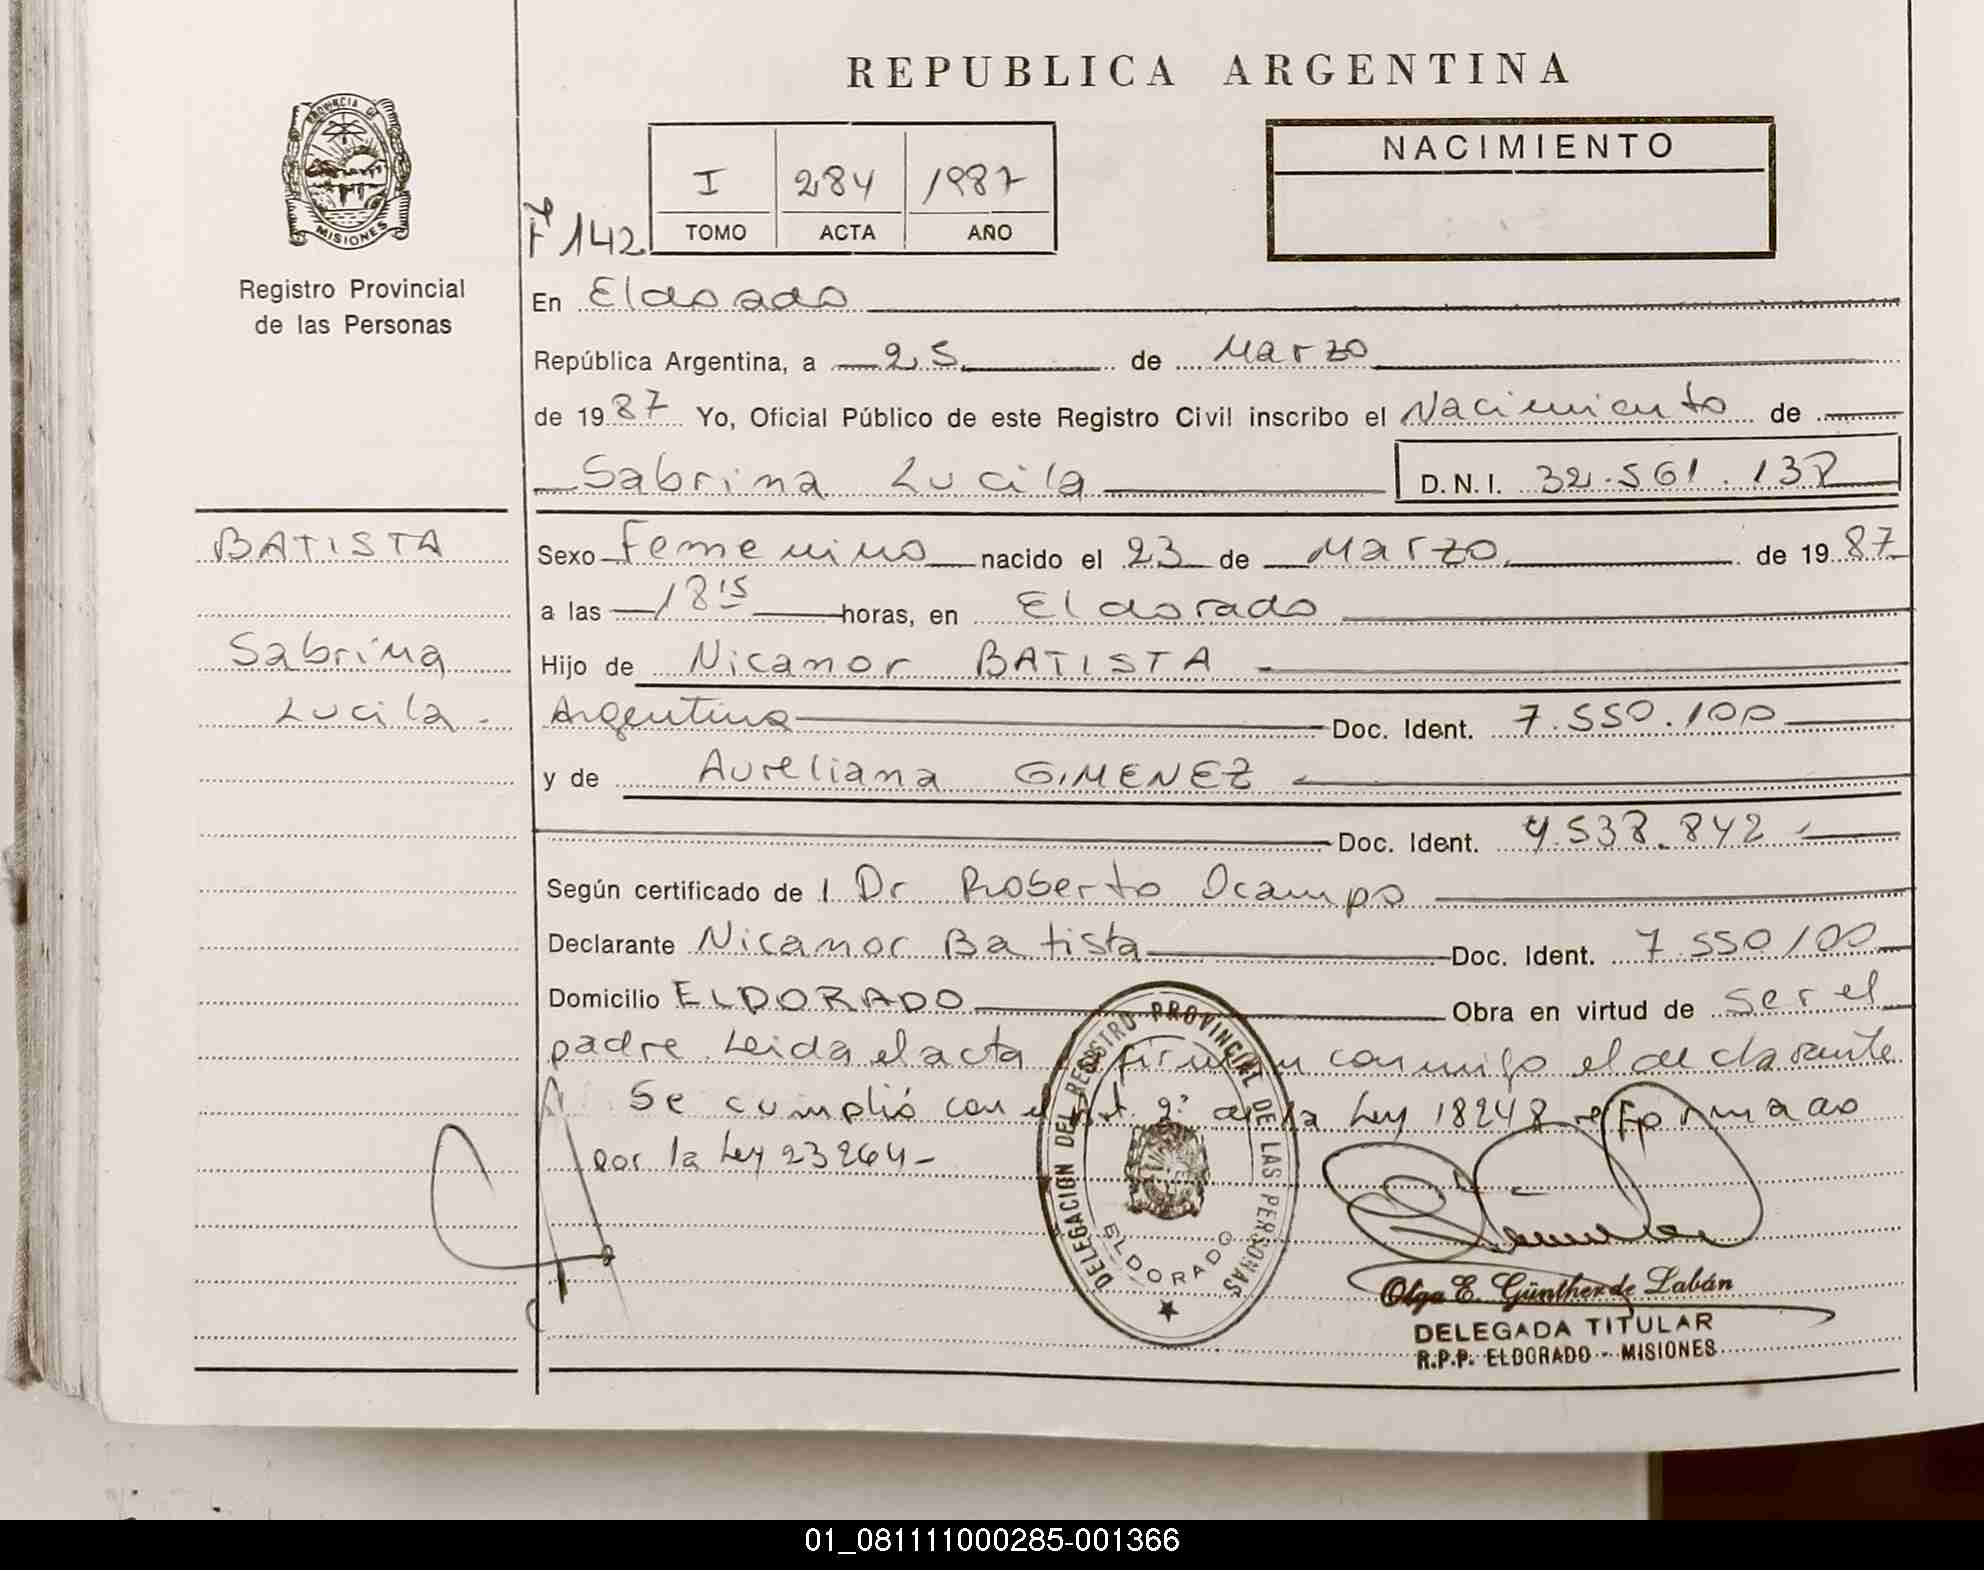 REPUBLICA ARGENTINA
PROVINCIA DE
MISIONES
Registro Provincial
de las Personas
NACIMIENTO
I 284 1987
TOMO ACTA AÑO
F 142
En Eldorado
República Argentina, a 25 de Marzo
de 1987 Yo, Oficial Público de este Registro Civil inscribo el Nacimiento de
Sabrina Lucila D.N.I. 32.561.137
BATISTA
Sabrina
Lucila -
Sexo Femenino nacido el 23 de Marzo de 1987
a las 18 15 horas, en Eldorado
Hijo de Nicanor BATISTA
Argentina Doc. Ident. 7.550.100
y de Aureliana GIMENEZ
Doc. Ident. 4.538.842
Según certificado de l Dr Roberto Ocampo
Declarante Nicanor Batista Doc. Ident. 7.550100
Domicilio ELDORADO Obra en virtud de ser el
padre. Leida el acta firman conmigo el declarante
Se cumplió con el Art. 2º de la Ley 18248 reformado
por la Ley 23264-
DELEGACION DEL REGISTRO PROVINCIAL DE LAS PERSONAS
ELDORADO
Olga E. Günther de Labán
DELEGADA TITULAR
R.P.P. ELDORADO - MISIONES
01_081111000285-001366